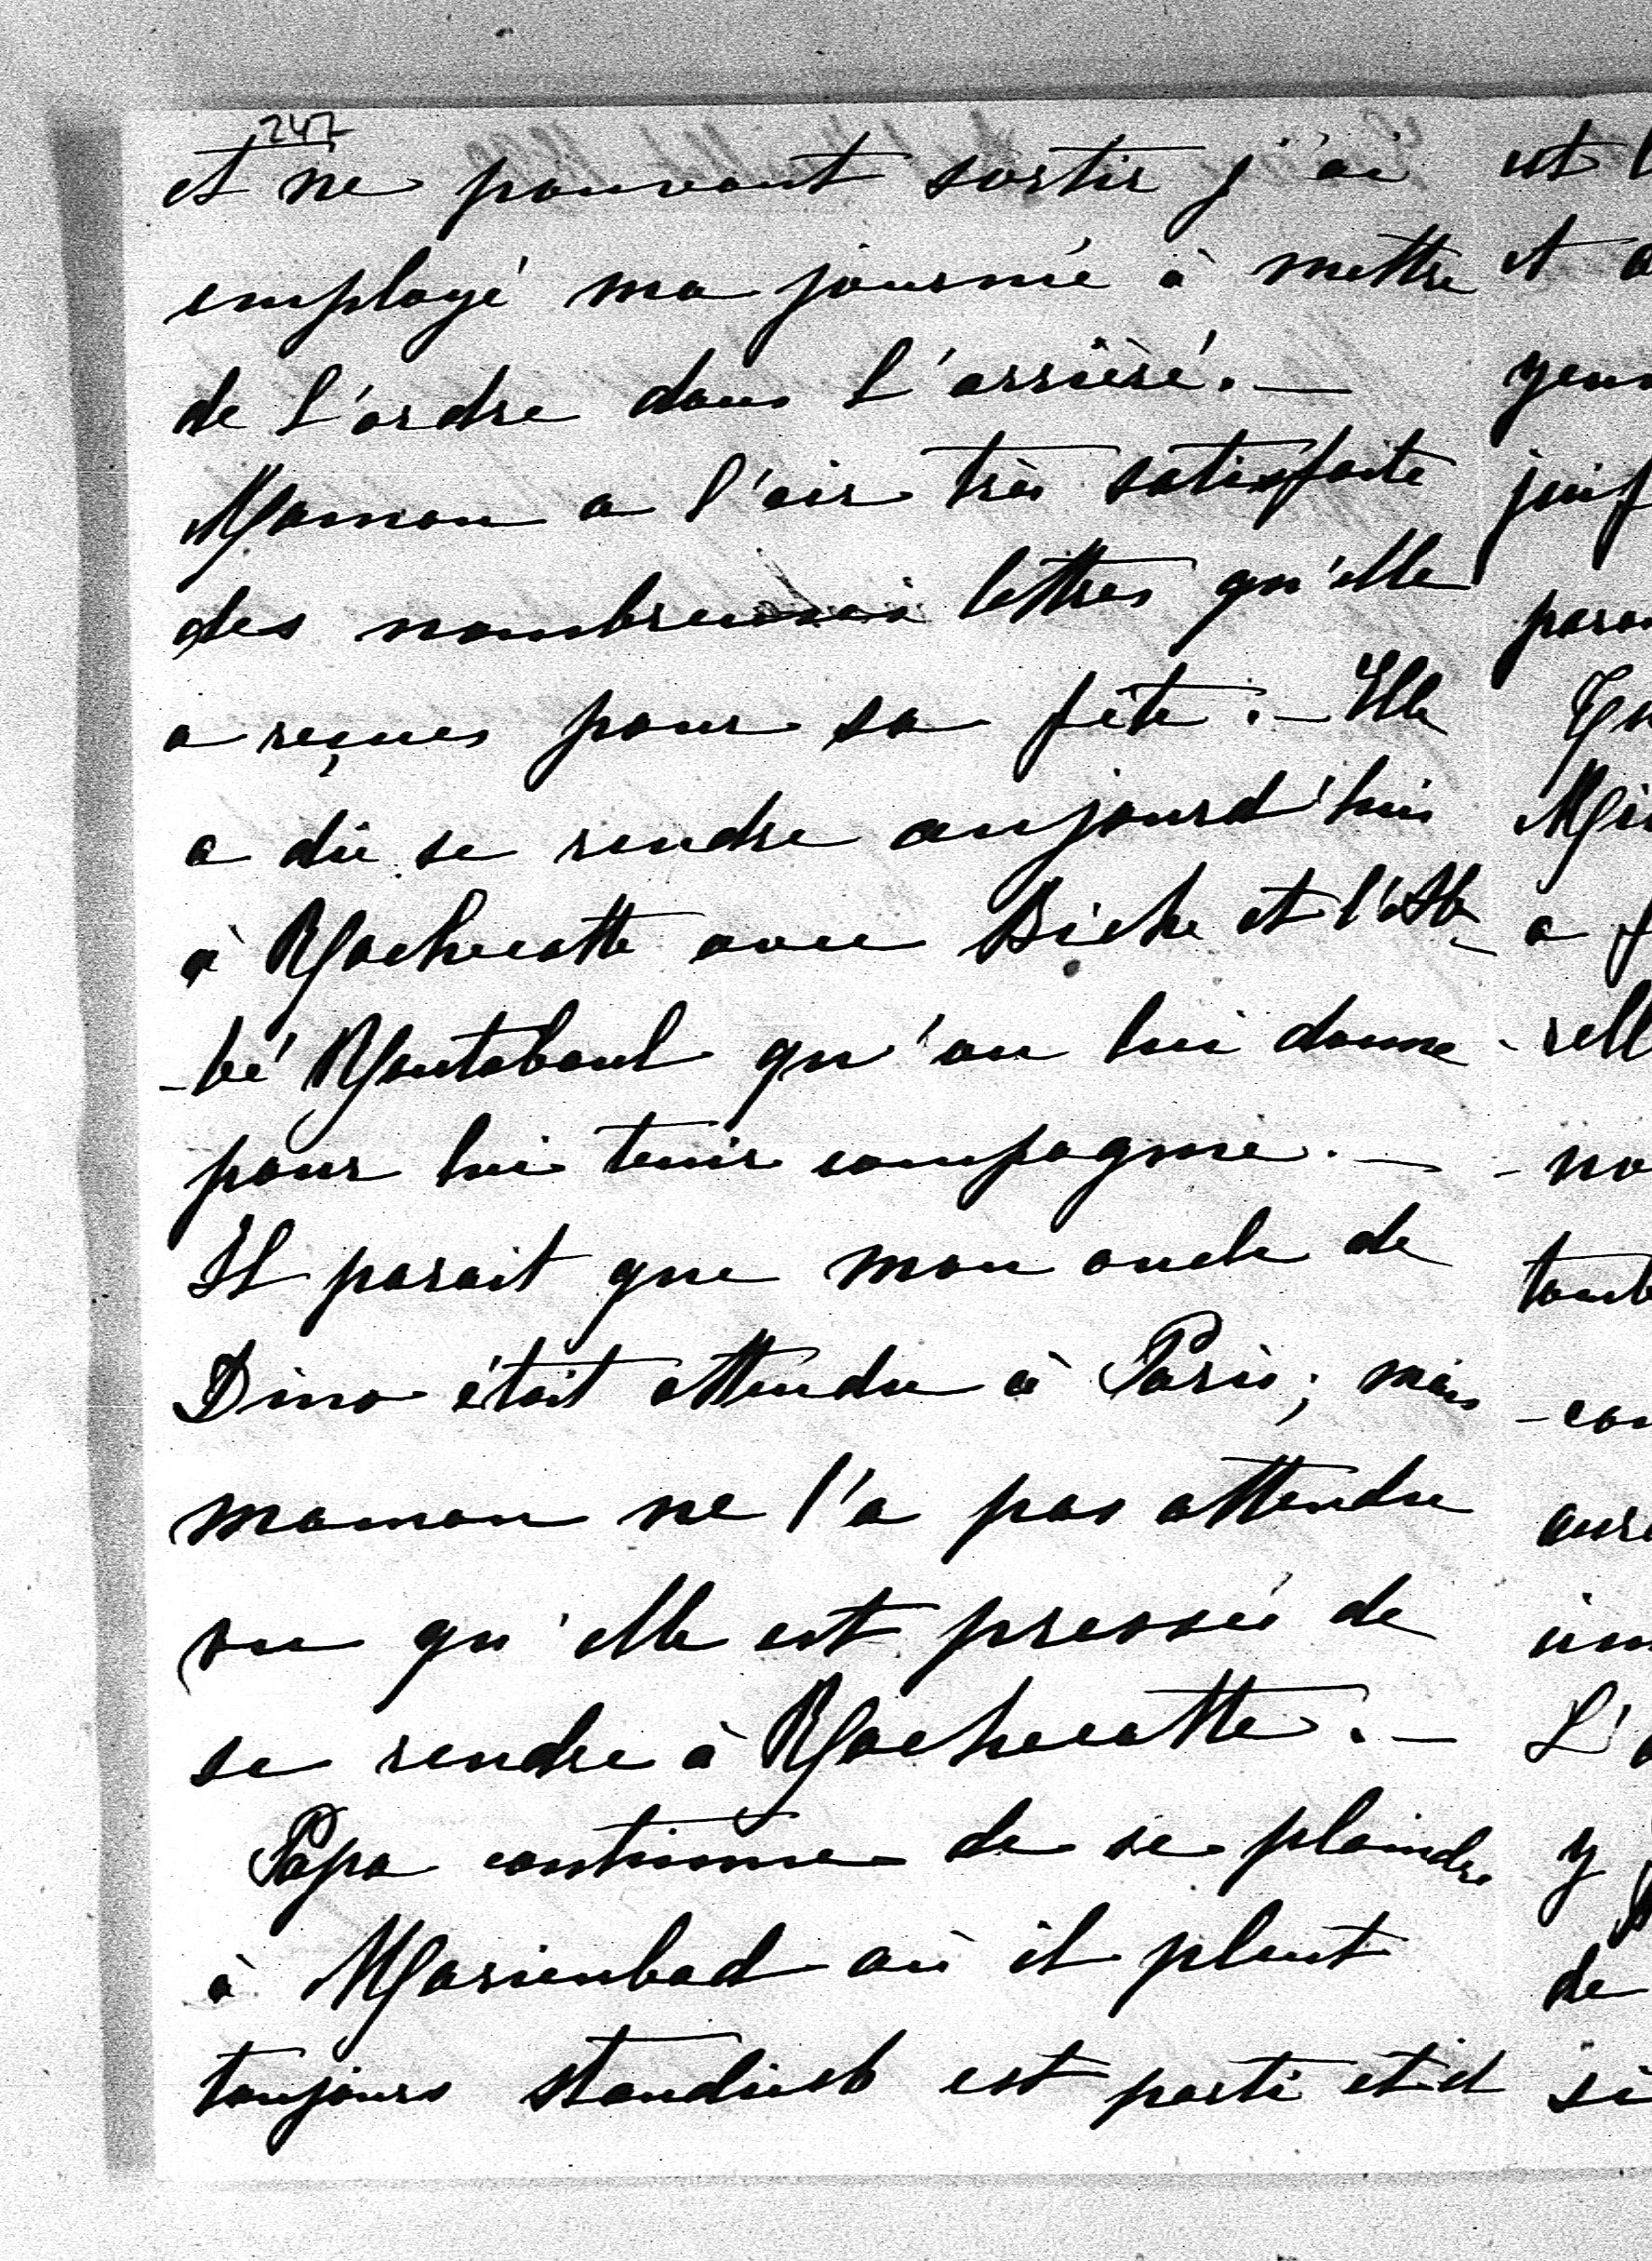 247
et ne pouvant sortir j'ai
employé ma journée à mettre
de l'ordre dans l'arriéré. —
Maman a l'air très satisfaite
des nombreuses lettres qu'elle
a reçues pour sa fête. — Elle
a dû se rendre aujourd'hui
à Rochecotte avec Biche et l'Ab-
-bé Montaboul qu'on lui donne
pour lui tenir compagnie. —
Il parait que mon oncle de
Dino était attendu à Paris; mais
maman ne l'a pas attendu
vu qu'elle est pressée de
se rendre à Rochecotte. —
Papa continue de se plaindre
à Marienbad où il pleut
toujours Standish est parti et il